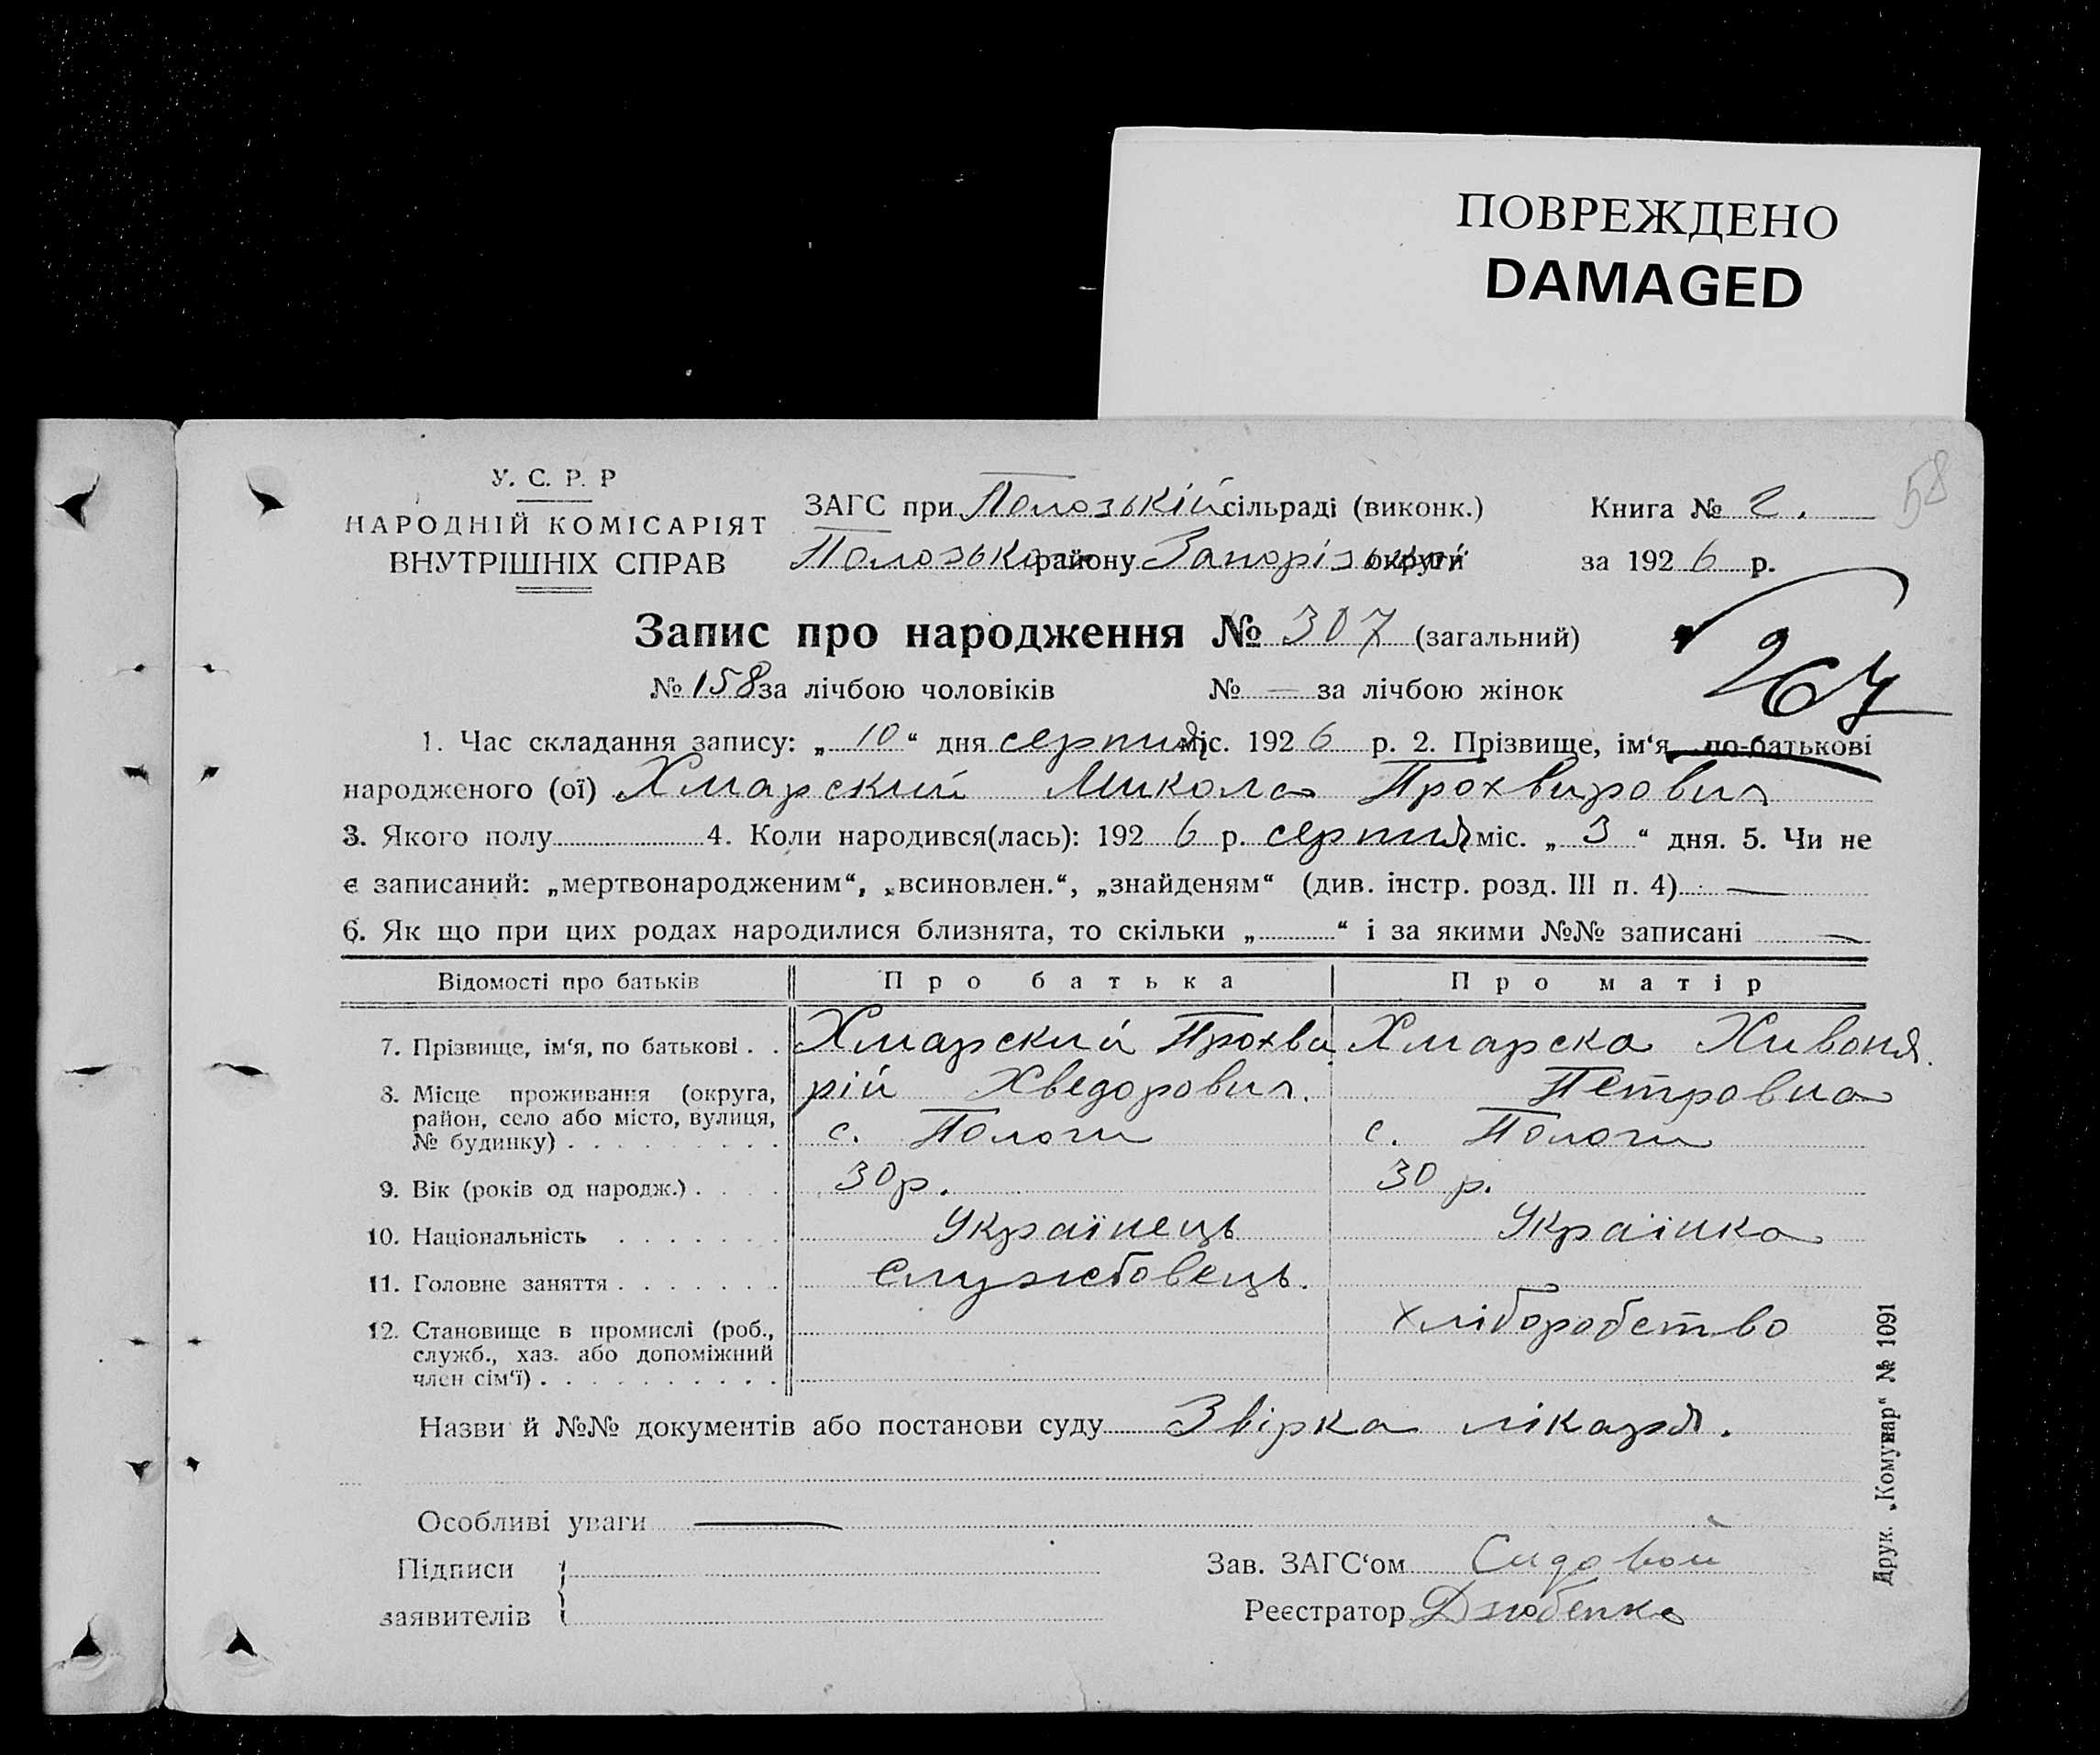 ПОВРЕЖДЕНО
DAMAGED
58
У. С. Р. Р
НАРОДНІЙ КОМІСАРІЯТ
ВНУТРІШНІХ СПРАВ
ЗАГС при Полозькій сільраді (виконк.)
Полозького району Запорізької округи
Книга № 2.
за 1926 р.
Запис про народження № 307 (загальний)
№ 158 за лічбою чоловіків № — за лічбою жінок
267
1. Час складання запису: „ 10 “ дня серпня міс. 1926 р. 2. Прізвище, ім‘я, по-батькові
народженого (ої) Хмарский Микола Прохвирович
3. Якого полу 4. Коли народився(лась): 1926 р. серпня міс. „ 3 “ дня. 5. Чи не
є записаний: „мертвонародженим“, „всиновлен.“, „знайденям“ (див. інстр. розд. III п. 4) —
6. Як що при цих родах народилися близнята, то скільки „ “ і за якими №№ записані —
Відомості про батьків Про батька Про матір
7. Прізвище, ім‘я, по батькові . . Хмарский Прохви Хмарска Хивоня
рій Хведорович. Петровна
8. Місце проживання (округа,
район, село або місто, вулиця,
№ будинку) . . . . . . . . . с. Пологи с. Пологи
9. Вік (років од народж.) . . . . 30 р. 30 р.
10. Національність . . . . . . . Українець Українка
11. Головне заняття . . . . . . . Службовець.
хліборобство
12. Становище в промислі (роб.,
служб., хаз. або допоміжний
член сім‘ї) . . . . . . . . . .
Назви й №№ документів або постанови суду Звірка лікаря.
Особливі уваги —
Підписи
заявителів
Зав. ЗАГС‘ом
Реєстратор Дзюбенко
Друк. „Комунар“ № 1091